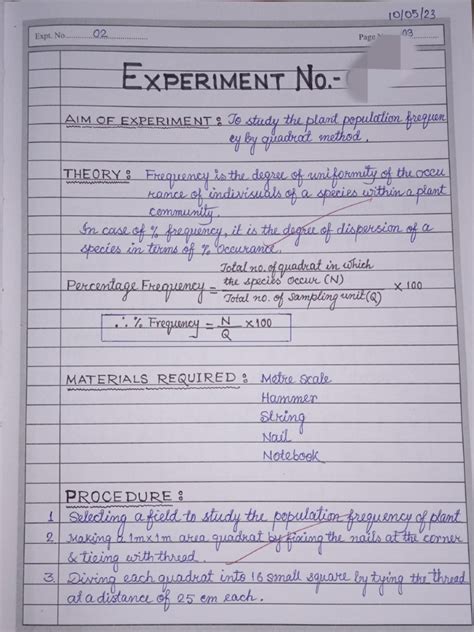 10/05/23
Expt. No. 02
Page 03
EXPERIMENT NO.-
AIM OF EXPERIMENT : To study the plant population frequen
cy by quadrat method.
THEORY : Frequency is the degree of uniformity of the occu
rance of indivisuals of a species within a plant
community.
In case of % frequency, it is the degree of dispersion of a
species in terms of % occurance.
Total no. of quadrat in which
the species occur (N)
Percentage Frequency = × 100
Total no. of sampling unit (Q)
∴ % Frequency = N/Q ×100
MATERIALS REQUIRED : Metre scale
Hammer
String
Nail
Notebook
PROCEDURE :
1 Selecting a field to study the population frequency of plant
2. Making a 1m×1m area quadrat by fixing the nails at the corner
& tieing with thread.
3. Diving each quadrat into 16 small square by tying the thread
at a distance of 25 cm each.